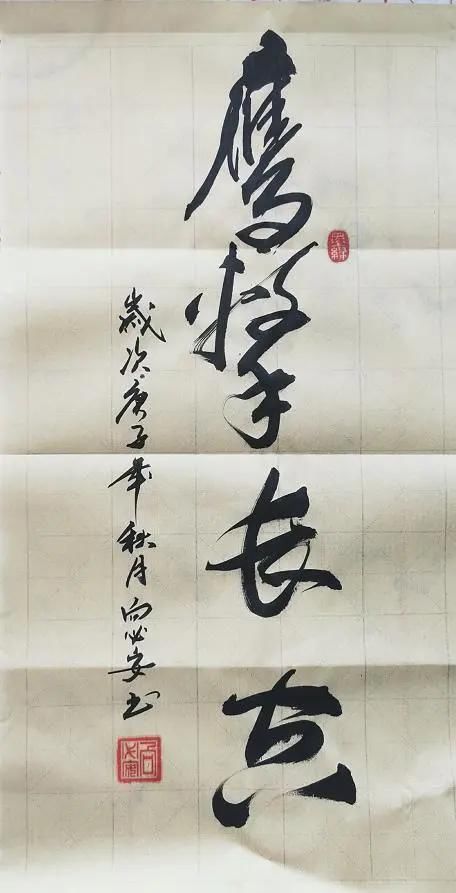 鹰击长空
岁次庚子年秋月向必安书